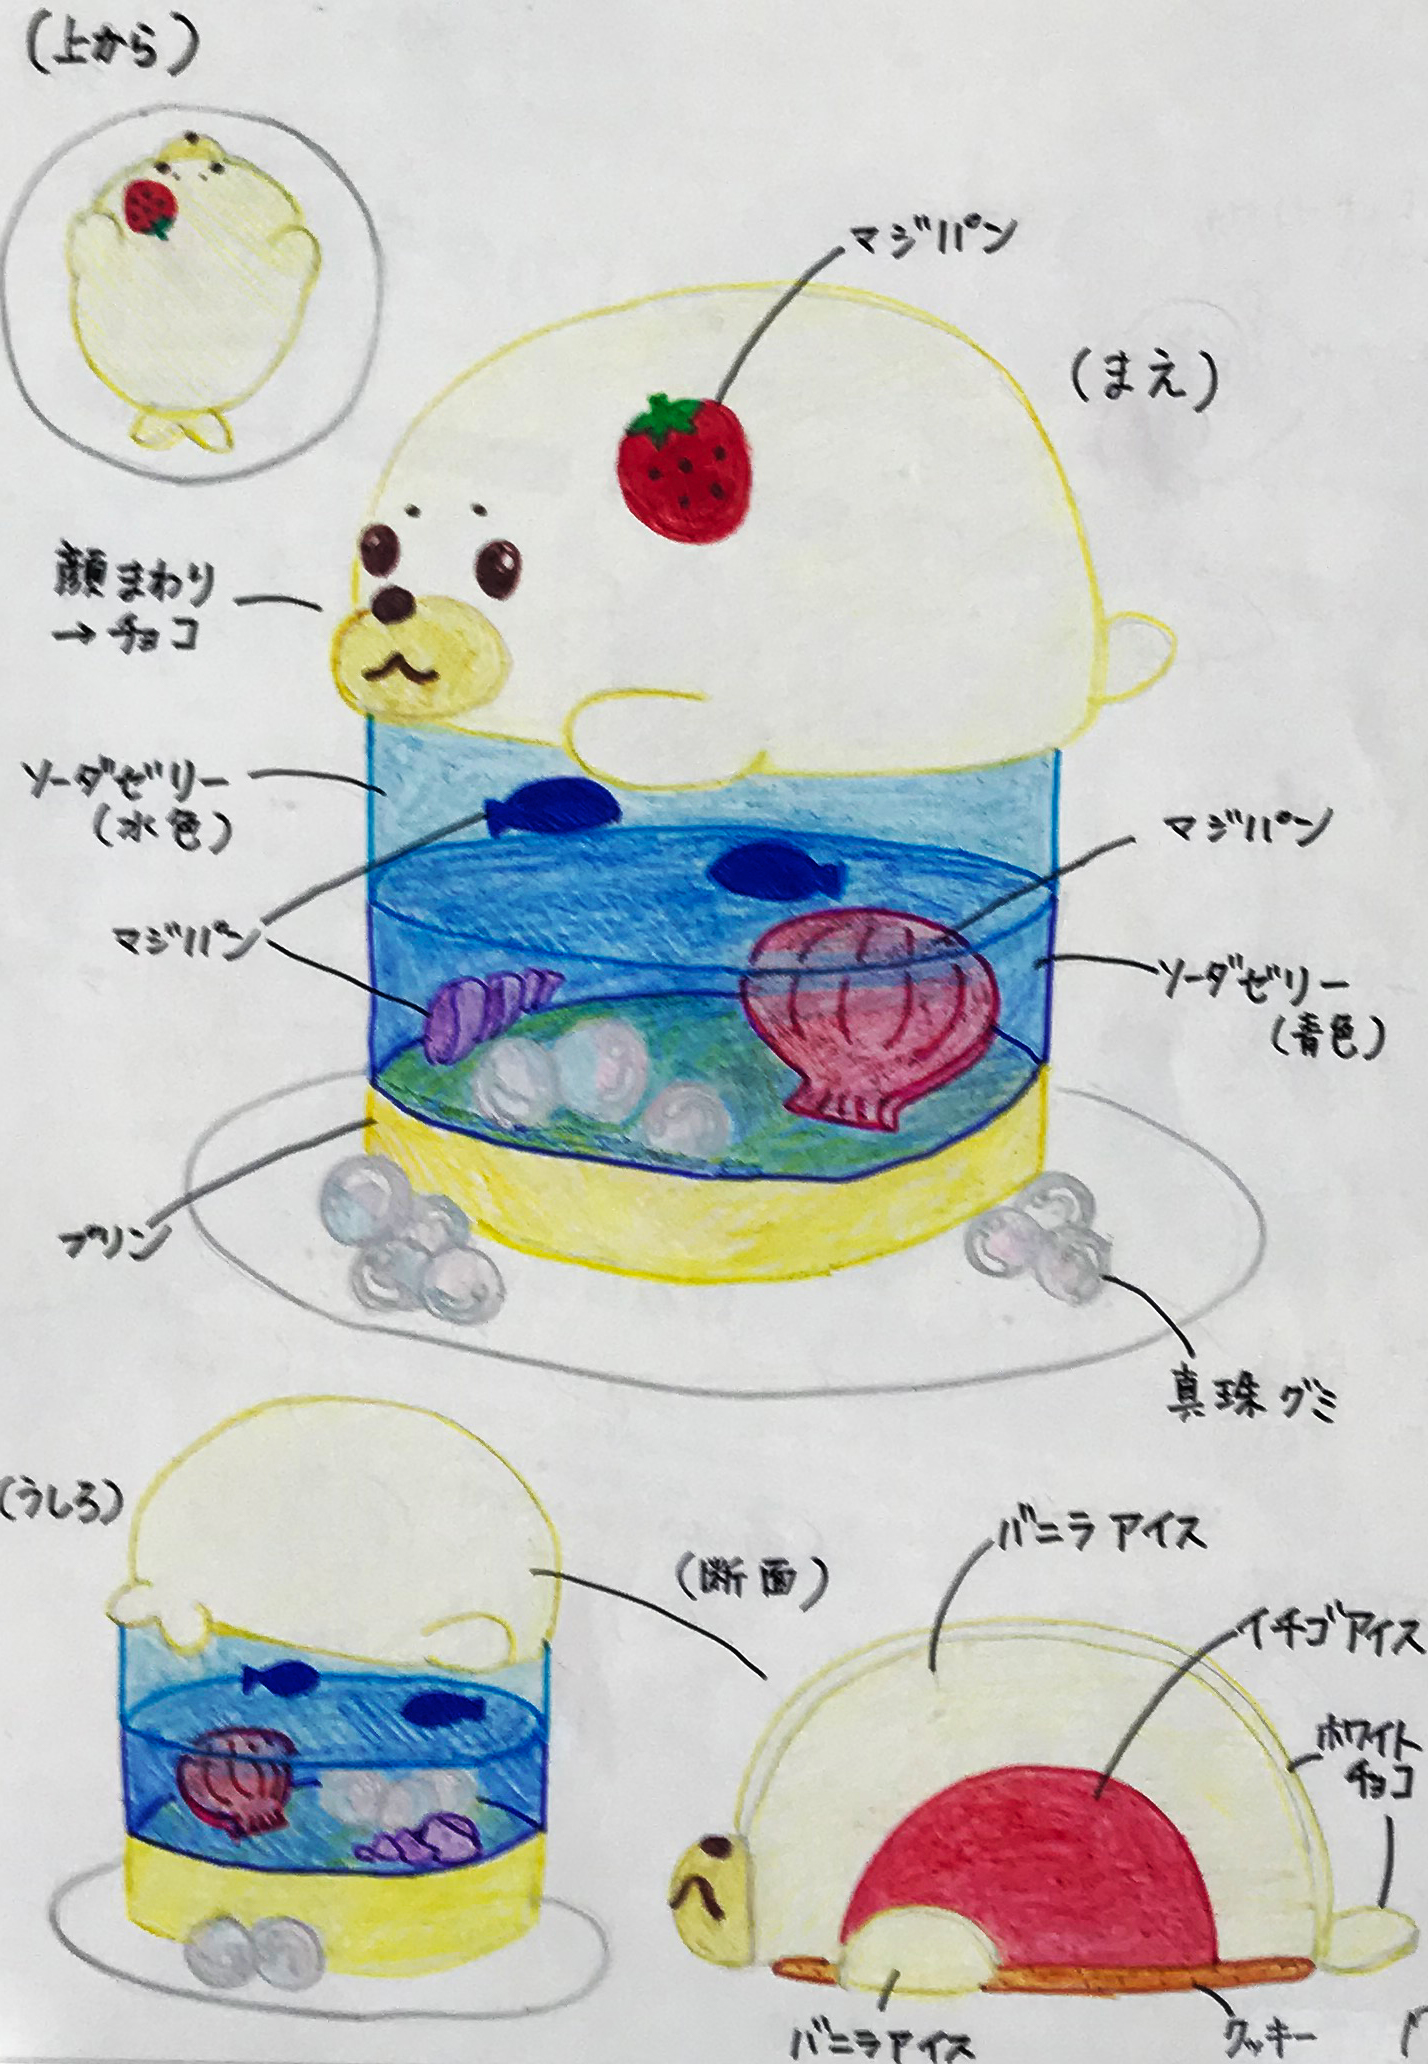 (上から)
マジパン
(まえ)
顔まわり
→チョコ
ソーダゼリー
(水色)
マジパン
マジパン
ソーダゼリー
(青色)
プリン
真珠グミ
(うしろ)
(断面)
バニラアイス
イチゴアイス
ホワイト
チョコ
バニラアイス
クッキー